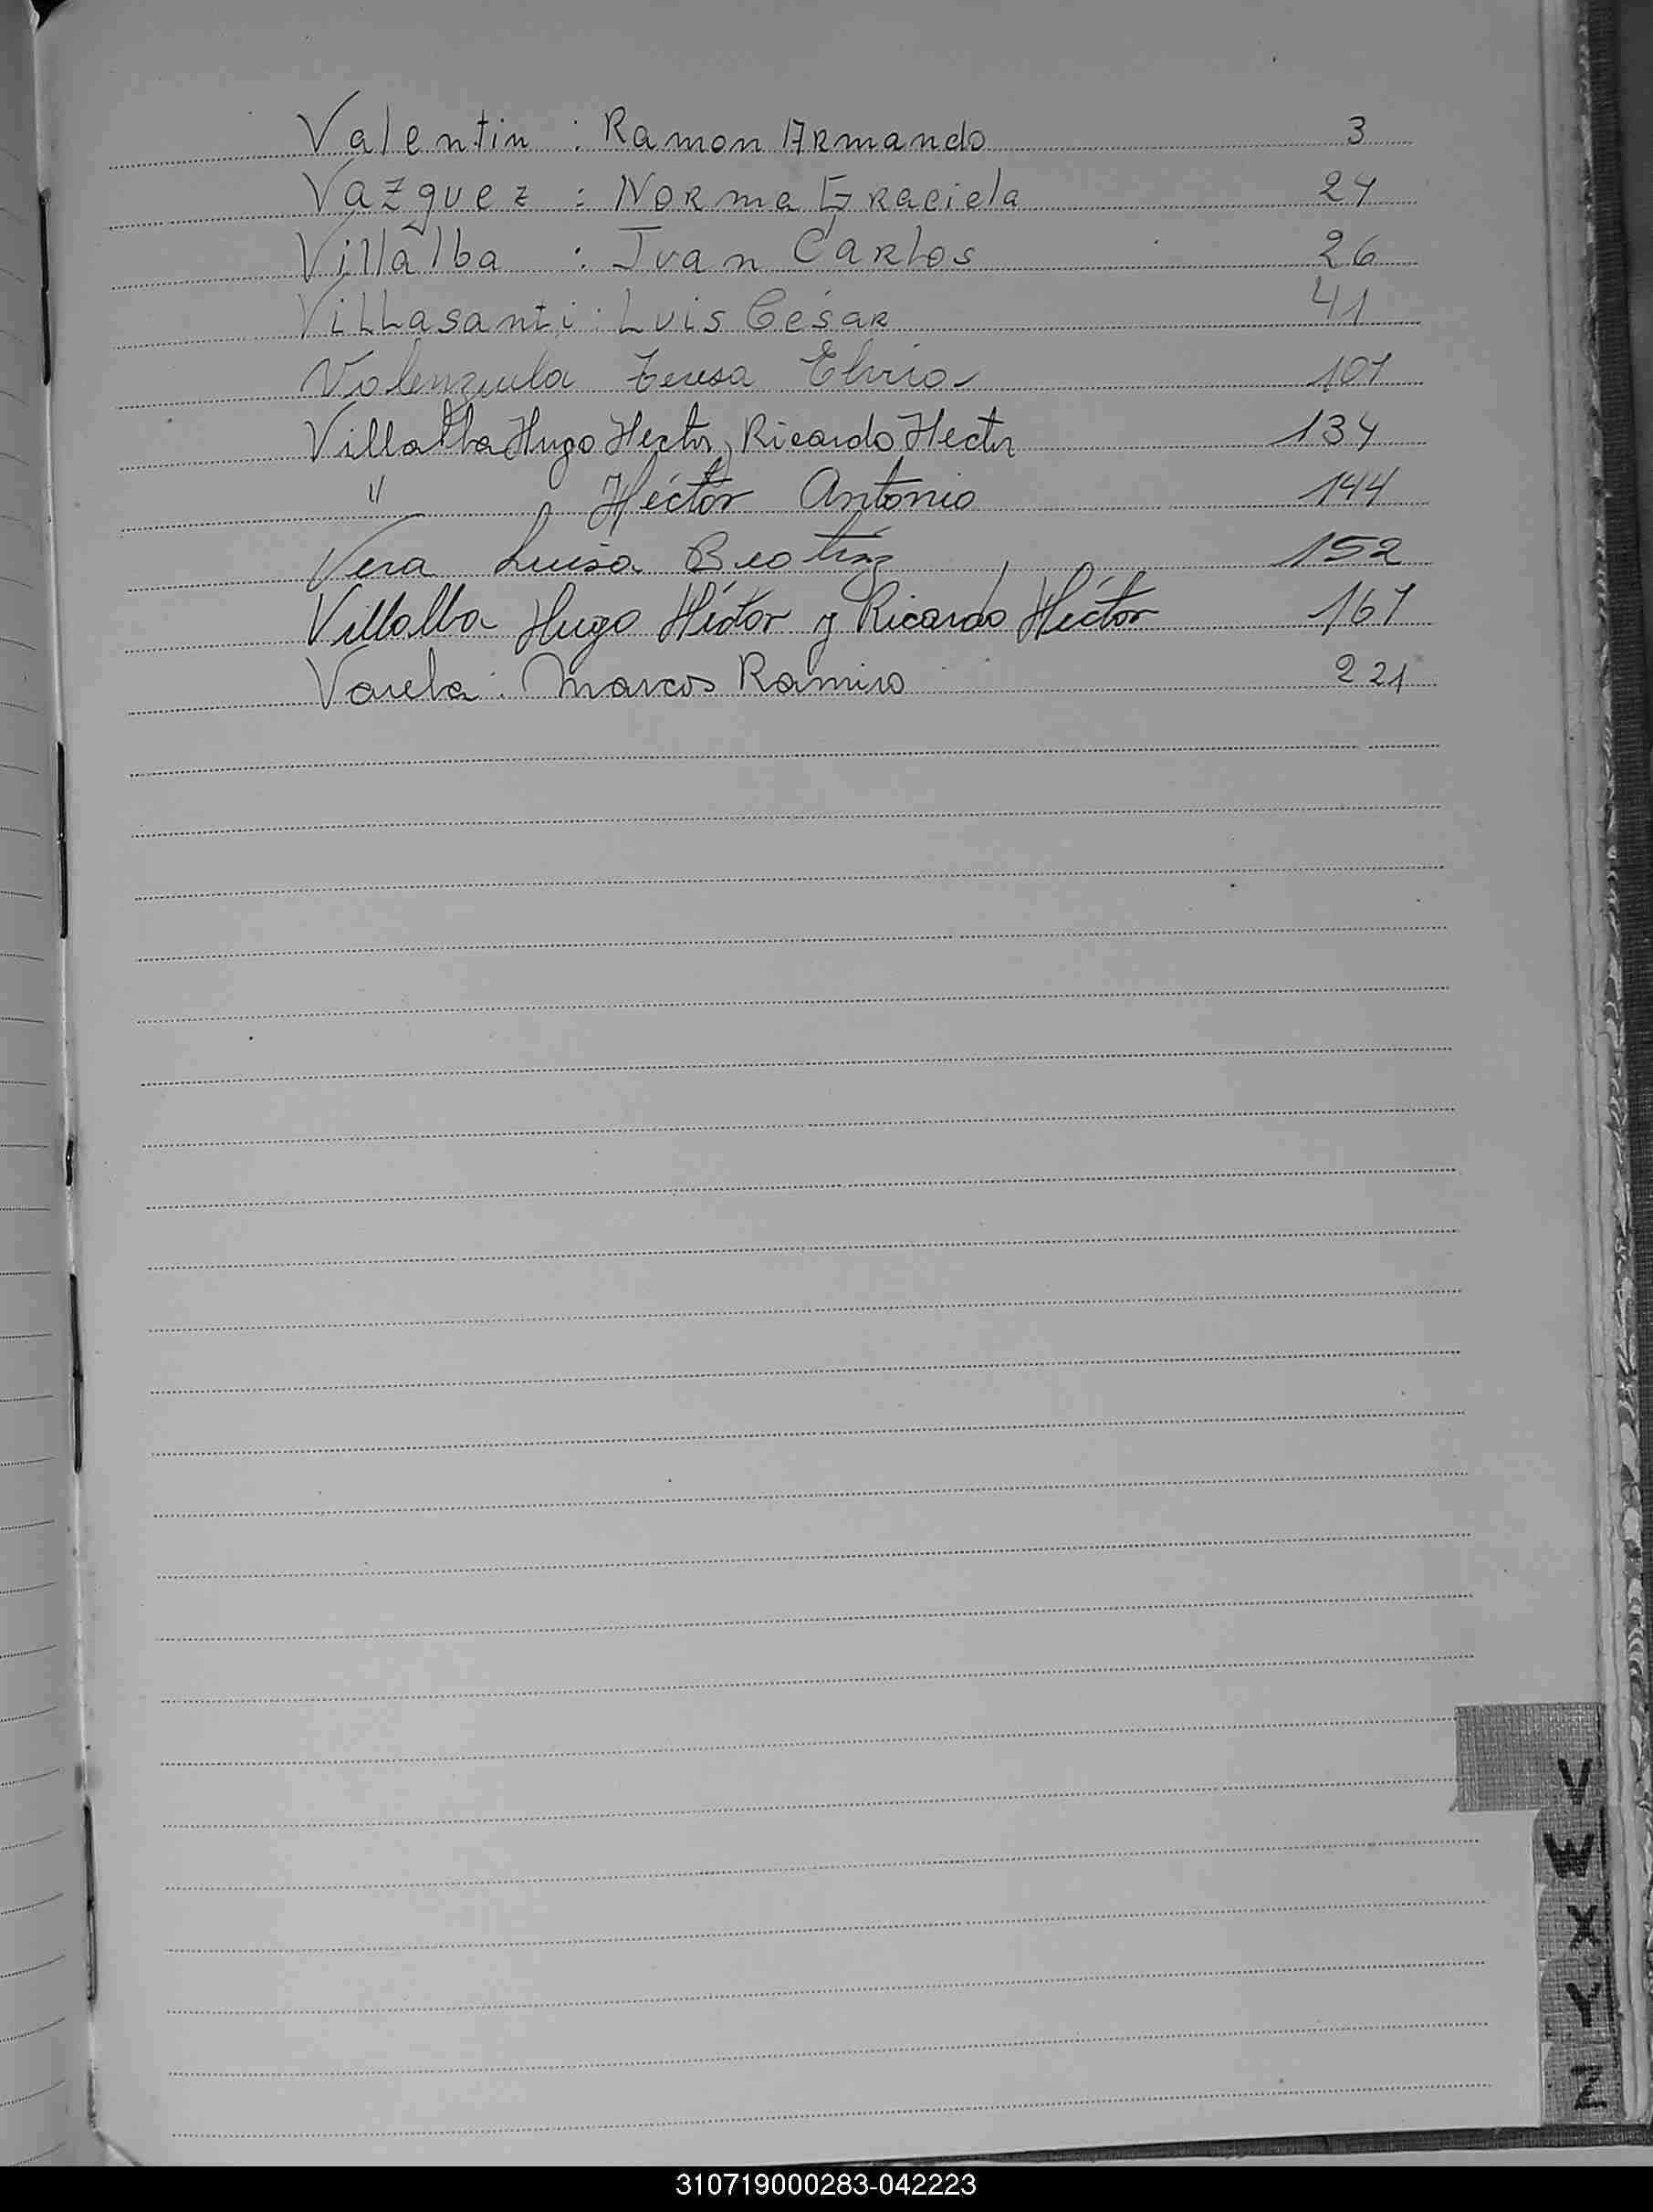 Valentin : Ramon Armando 3
Vazquez : Norma Graciela 24
Villalba : Juan Carlos 26
Villasanti : Luis César 41
Valenzuela Teresa Elvira 101
Villalba Hugo Hector, Ricardo Hector 134
" Héctor Antonio 144
Vera Luisa Beatriz 152
Villalba Hugo Héctor y Ricardo Héctor 167
Varela : Marcos Ramiro 221
V
W
X
Y
Z
310719000283-042223